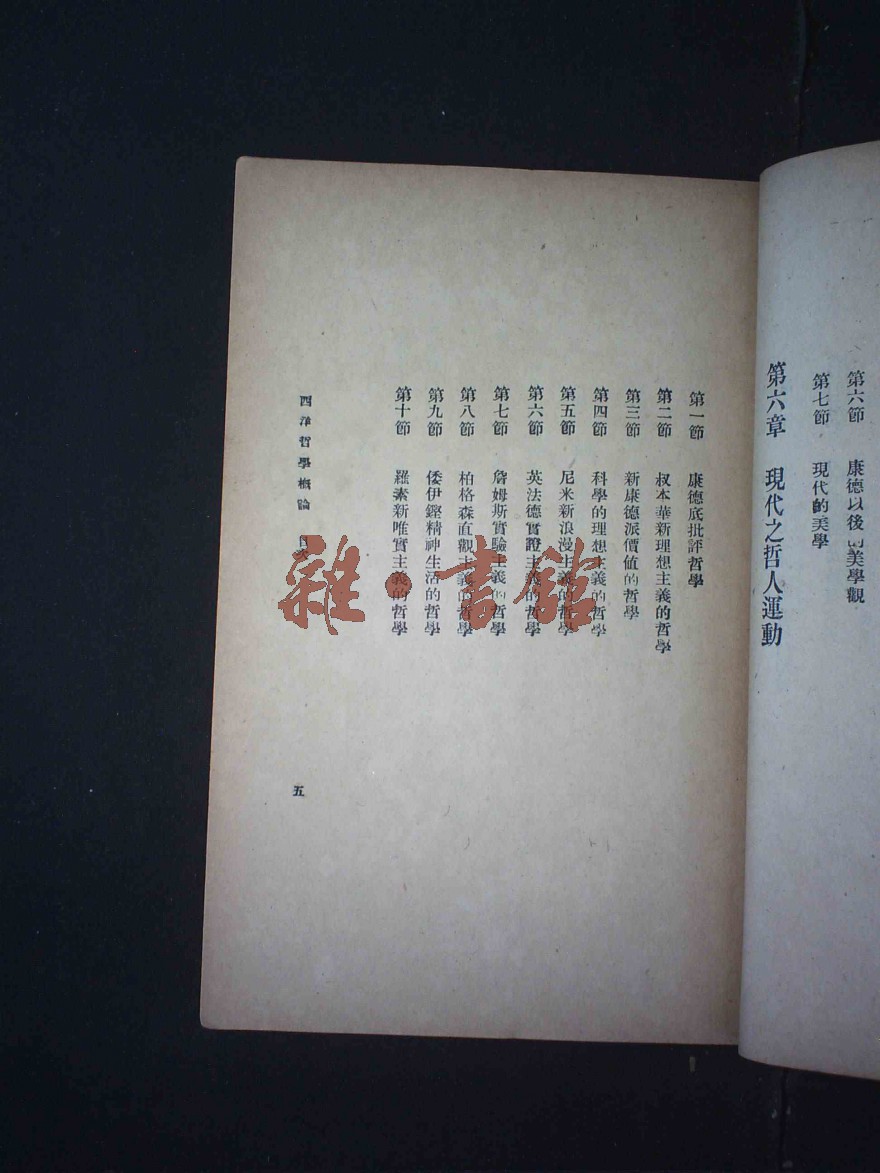 第六節　康德以後的美學觀
第七節　現代的美學
第六章　現代之哲人運動
第一節　康德底批評哲學
第二節　叔本華新理想主義的哲學
第三節　新康德派價値的哲學
第四節　科學的理想主義的哲學
第五節　尼米新浪漫主義的哲學
第六節　英法德實證主義的哲學
第七節　詹姆斯實驗主義的哲學
第八節　柏格森直觀主義的哲學
第九節　倭伊鏗精神生活的哲學
第十節　羅素新唯實主義的哲學
西洋哲學概論　目次
五
雜·書館